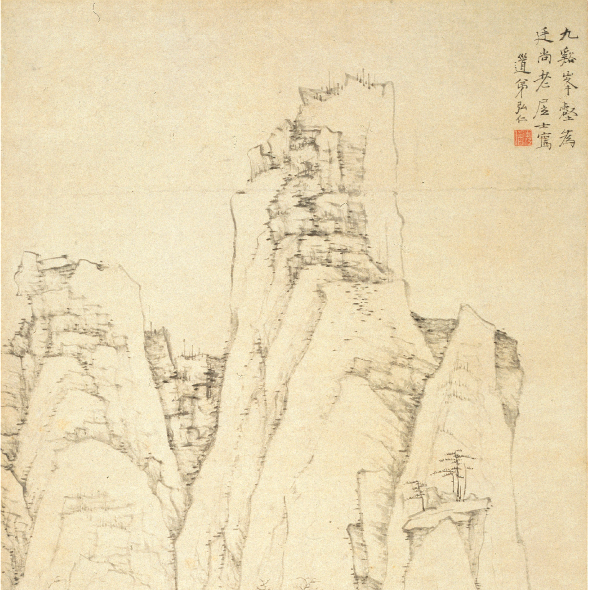 九谿峯壑為
迋尚老居士寫
道弟弘仁